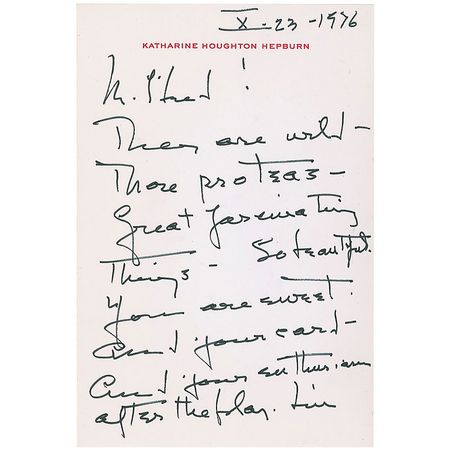 X-23-1976
KATHARINE HOUGHTON HEPBURN
M. !
They are wild -
Those proteas -
Great fascinating
Things - So beautiful.
You are sweet!
And your card -
And your enthusiasm
after the play.